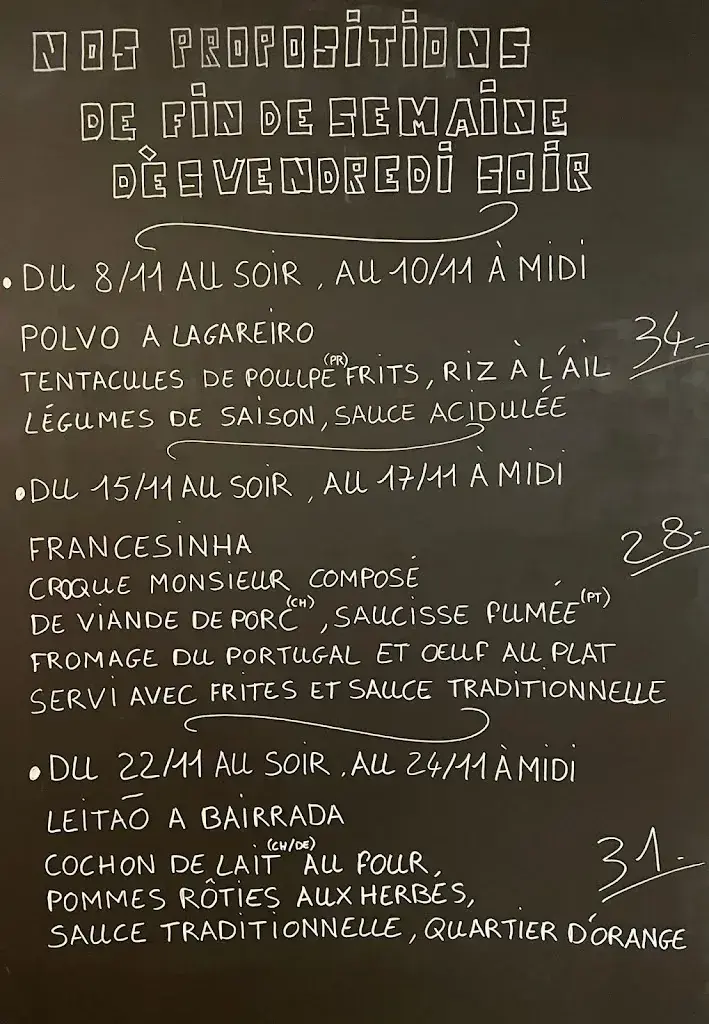 NOS PROPOSITIONS
DE FIN DE SEMAINE
DÈS VENDREDI SOIR
• DU 8/11 AU SOIR, AU 10/11 À MIDI
POLVO A LAGAREIRO
34.-
TENTACULES DE POULPE (PR) FRITS, RIZ À L'AIL
LÉGUMES DE SAISON, SAUCE ACIDULÉE
• DU 15/11 AU SOIR, AU 17/11 À MIDI
FRANCESINHA
28.-
CROQUE MONSIEUR COMPOSÉ
DE VIANDE DE PORC (CH), SAUCISSE FUMÉE (PT)
FROMAGE DU PORTUGAL ET OEUF AU PLAT
SERVI AVEC FRITES ET SAUCE TRADITIONNELLE
• DU 22/11 AU SOIR, AU 24/11 À MIDI
LEITÃO A BAIRRADA
COCHON DE LAIT (CH/DE) AU FOUR,
31.-
POMMES RÔTIES AUX HERBES,
SAUCE TRADITIONNELLE, QUARTIER D'ORANGE